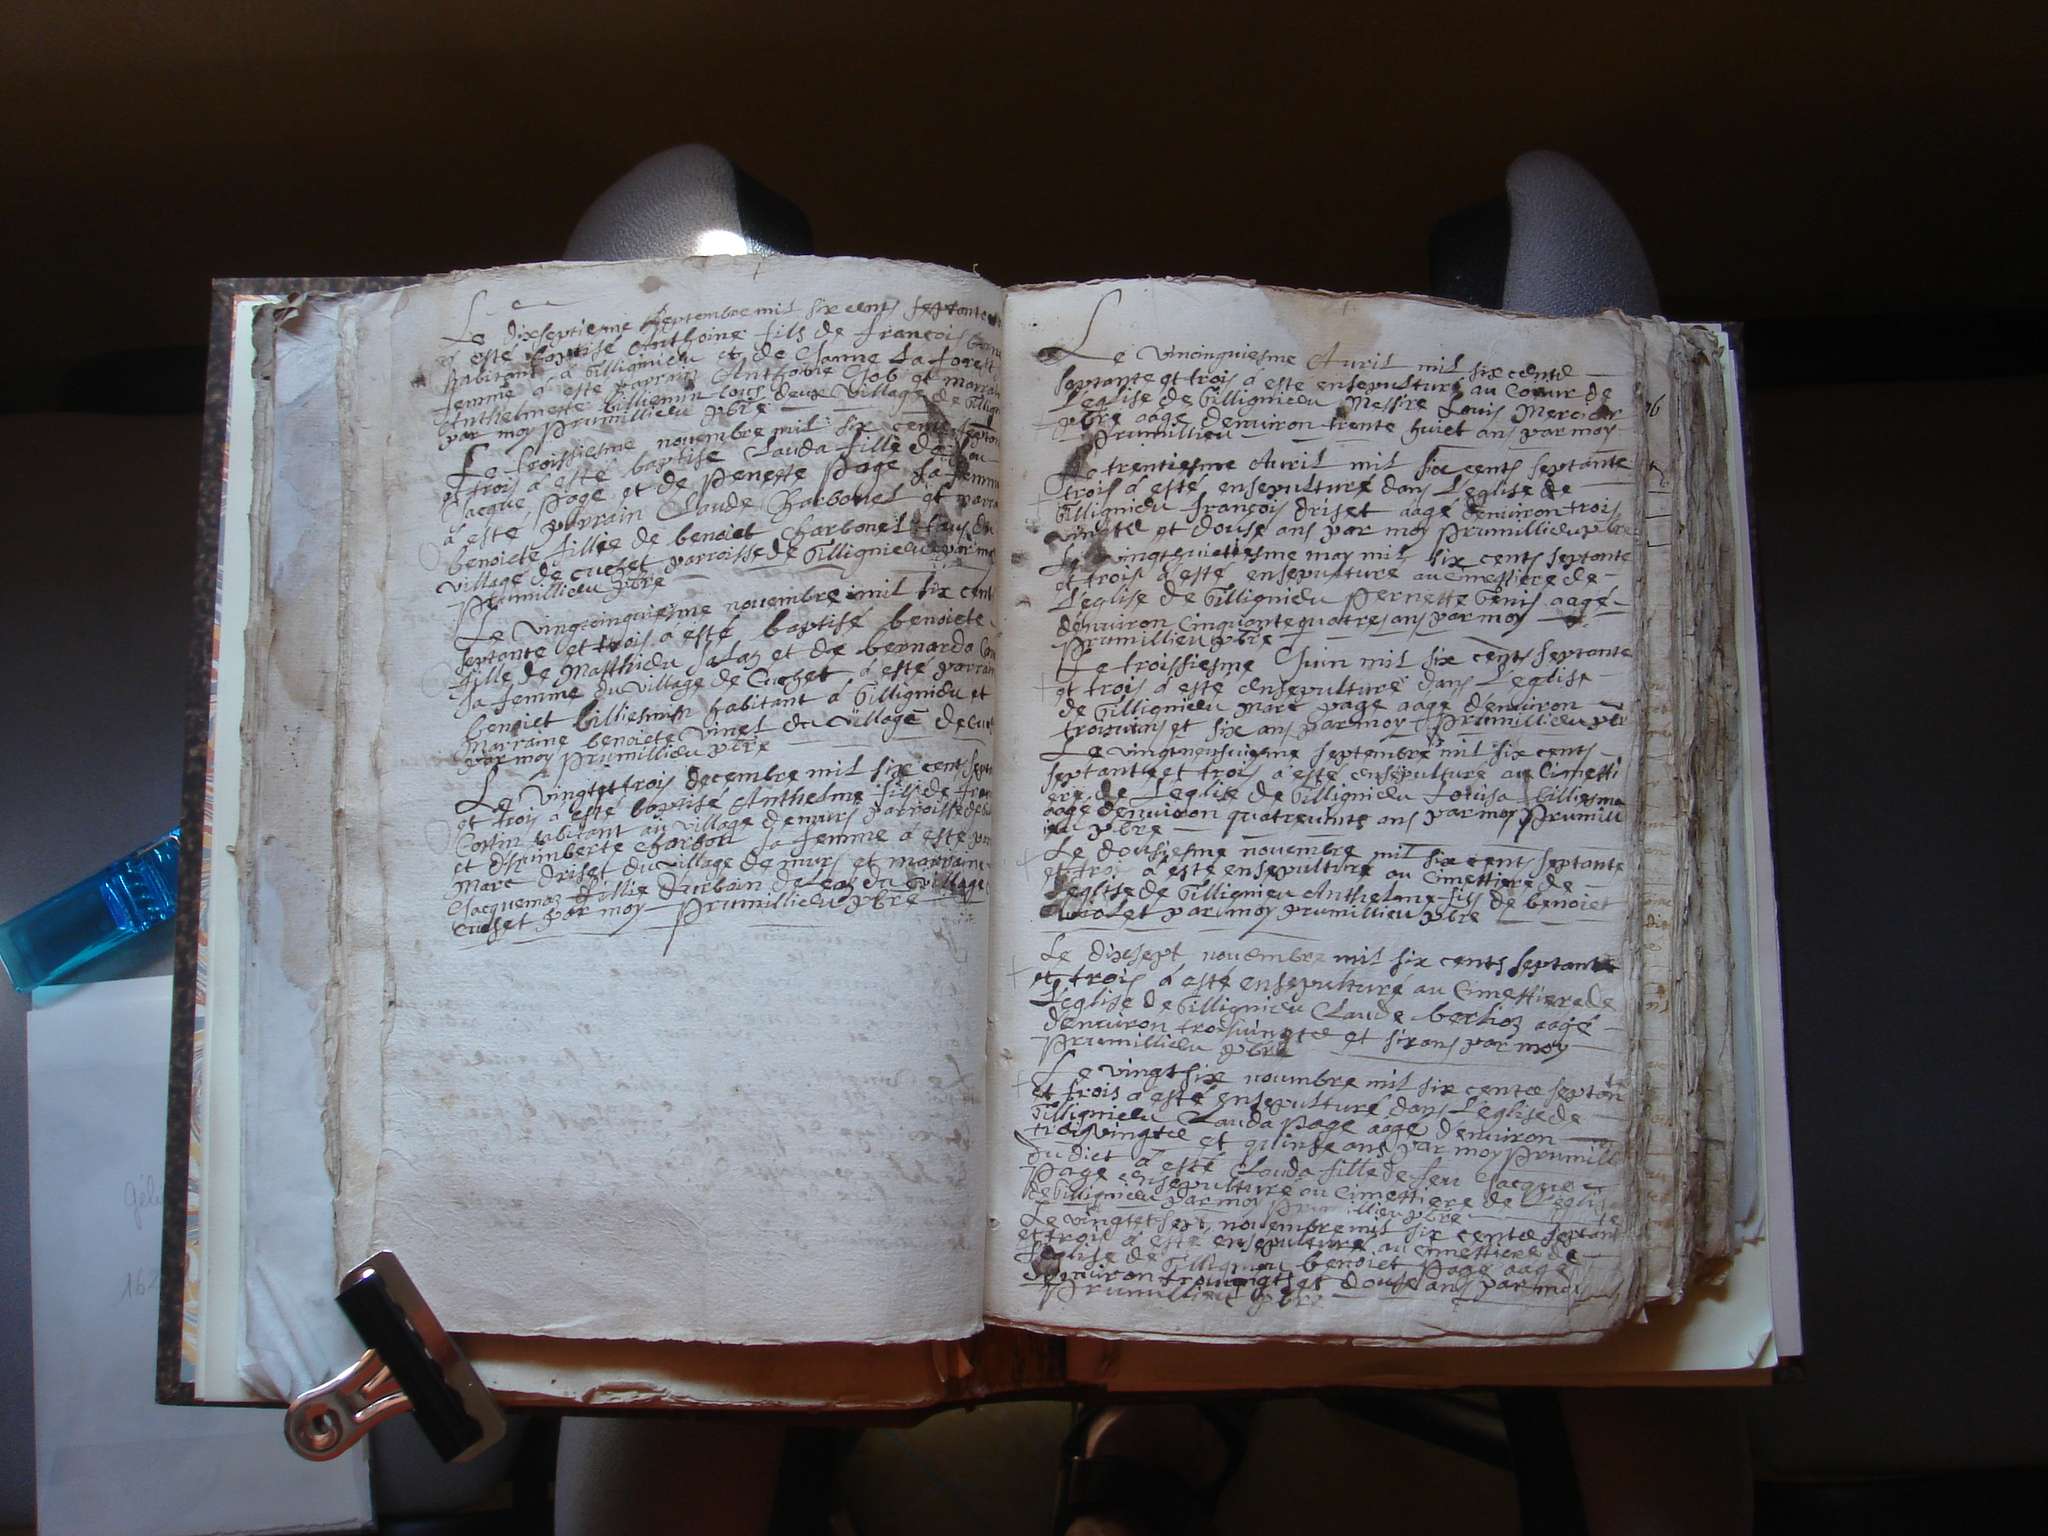 Le dixseptiesme septembre mil six cents septante
et esté baptisé Anthoine fils de françois
habitant à Gillignieu et de Janne La forest
femme à esté parrain Anthoine Job et marraine
Anthelmette billiemin tous deux village de Gillign
par moy Prumillieu pbre
Le troissiesme novembre mil six cents septan
et trois à esté baptisé Lauda fille de
Jacque page et de penette page sa femme
à esté parrain Claude Charbonel et marra
benoiete fillie de benoiet Charbonel tous du
village de cuchet parroisse de Gillignieu par mo
Prumillieu pbre
Le vingtcinquiesme novembre mil six cents
septante et trois à esté baptisé benoiete
fille de Matthieu Jalaz et de bernarda
sa femme du village de Cuchet à esté parrain
benoiet billiemin habitant à Gillignieu et
Marraine benoiete vinel du village de cuc
par moy Prumillieu pbre
Le vingtettrois decembre mil six cents sept
et trois à esté baptisé Anthelme fils de fran
Costin habitant au village de murs parroisse de
et d'humberte charbon sa femme à esté par
Marc driset du village de murs et marraine
Jacquemaz fillie d'urbain deleaz du village
cuchet par moy Prumillieu pbre
Le vincinquiesme Auril mil six cents
septante et trois à esté ensepulturé au Coeur de
L'eglise de Gillignieu Messire Louis Mercier
pbre aagé denuiron trente huiet ans par moy
Prumillieu
Le trentiesme Auril mil six cents septante
trois à esté ensepulturé dans L'eglise de
Gillignieu françois driset aagé denuiron trois
vingts et douse ans par moy Prumillieu pbre
Le vingthuictiesme may mil six cents septante
et trois à esté ensepulturé au Cimettiere de
L'eglise de Gillignieu pernette Genis aagé
denuiron Cinquantequatre ans par moy
Prumillieu pbre
Le troissiesme Juin mil six cents septante
et trois à esté ensepulturé dans L'eglise
de Gillignieu Marc page aagé denuiron
troisuins et six ans par moy Prumillieu pbr
Le vingtneufuiesme septembre mil six cents
septante et trois à esté ensepulturé au Cimetti
ere de L'eglise de Gillignieu Louisa billiesma
aagé denuiron quatreuints ans par moy Prumilli
eu pbre
Le dousiesme novembre mil six cents septante
et trois à esté ensepulturé au Cimettiere de
L'eglise de Gillignieu Anthelme fils de benoiet
par moy prumillieu pbre
Le dixsept nouembre mil six cents septante
et trois à esté ensepulturé au Cimettiere de
L'eglise de Gillignieu Claude berlioz aagé
denuiron troisuingts et six ans par moy
Prumillieu pbre
Le vingtsix nouembre mil six cents septan
et trois à esté ensepulturé dans L'eglise de
Gillignieu Lauda Page aagé d'enuiron
troisvingts et quinse ans par moy Prumilli
du dict à esté Lauda fille de feu Jacque
Page ensepulturé au Cimettiere de L'eglise
de Gillignieu par moy Prumillieu pbre
Le vingtetsept nouembre mil six cents septant
et trois à esté ensepulturé au cimettiere de
L'eglise de Gillignieu benoiet Page aagé
denuiron trouuingts et douse ans par moy
Prumillieu pbre